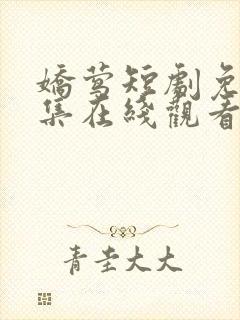 嬌鶯短劇免
集在綫觀看
青圭大大